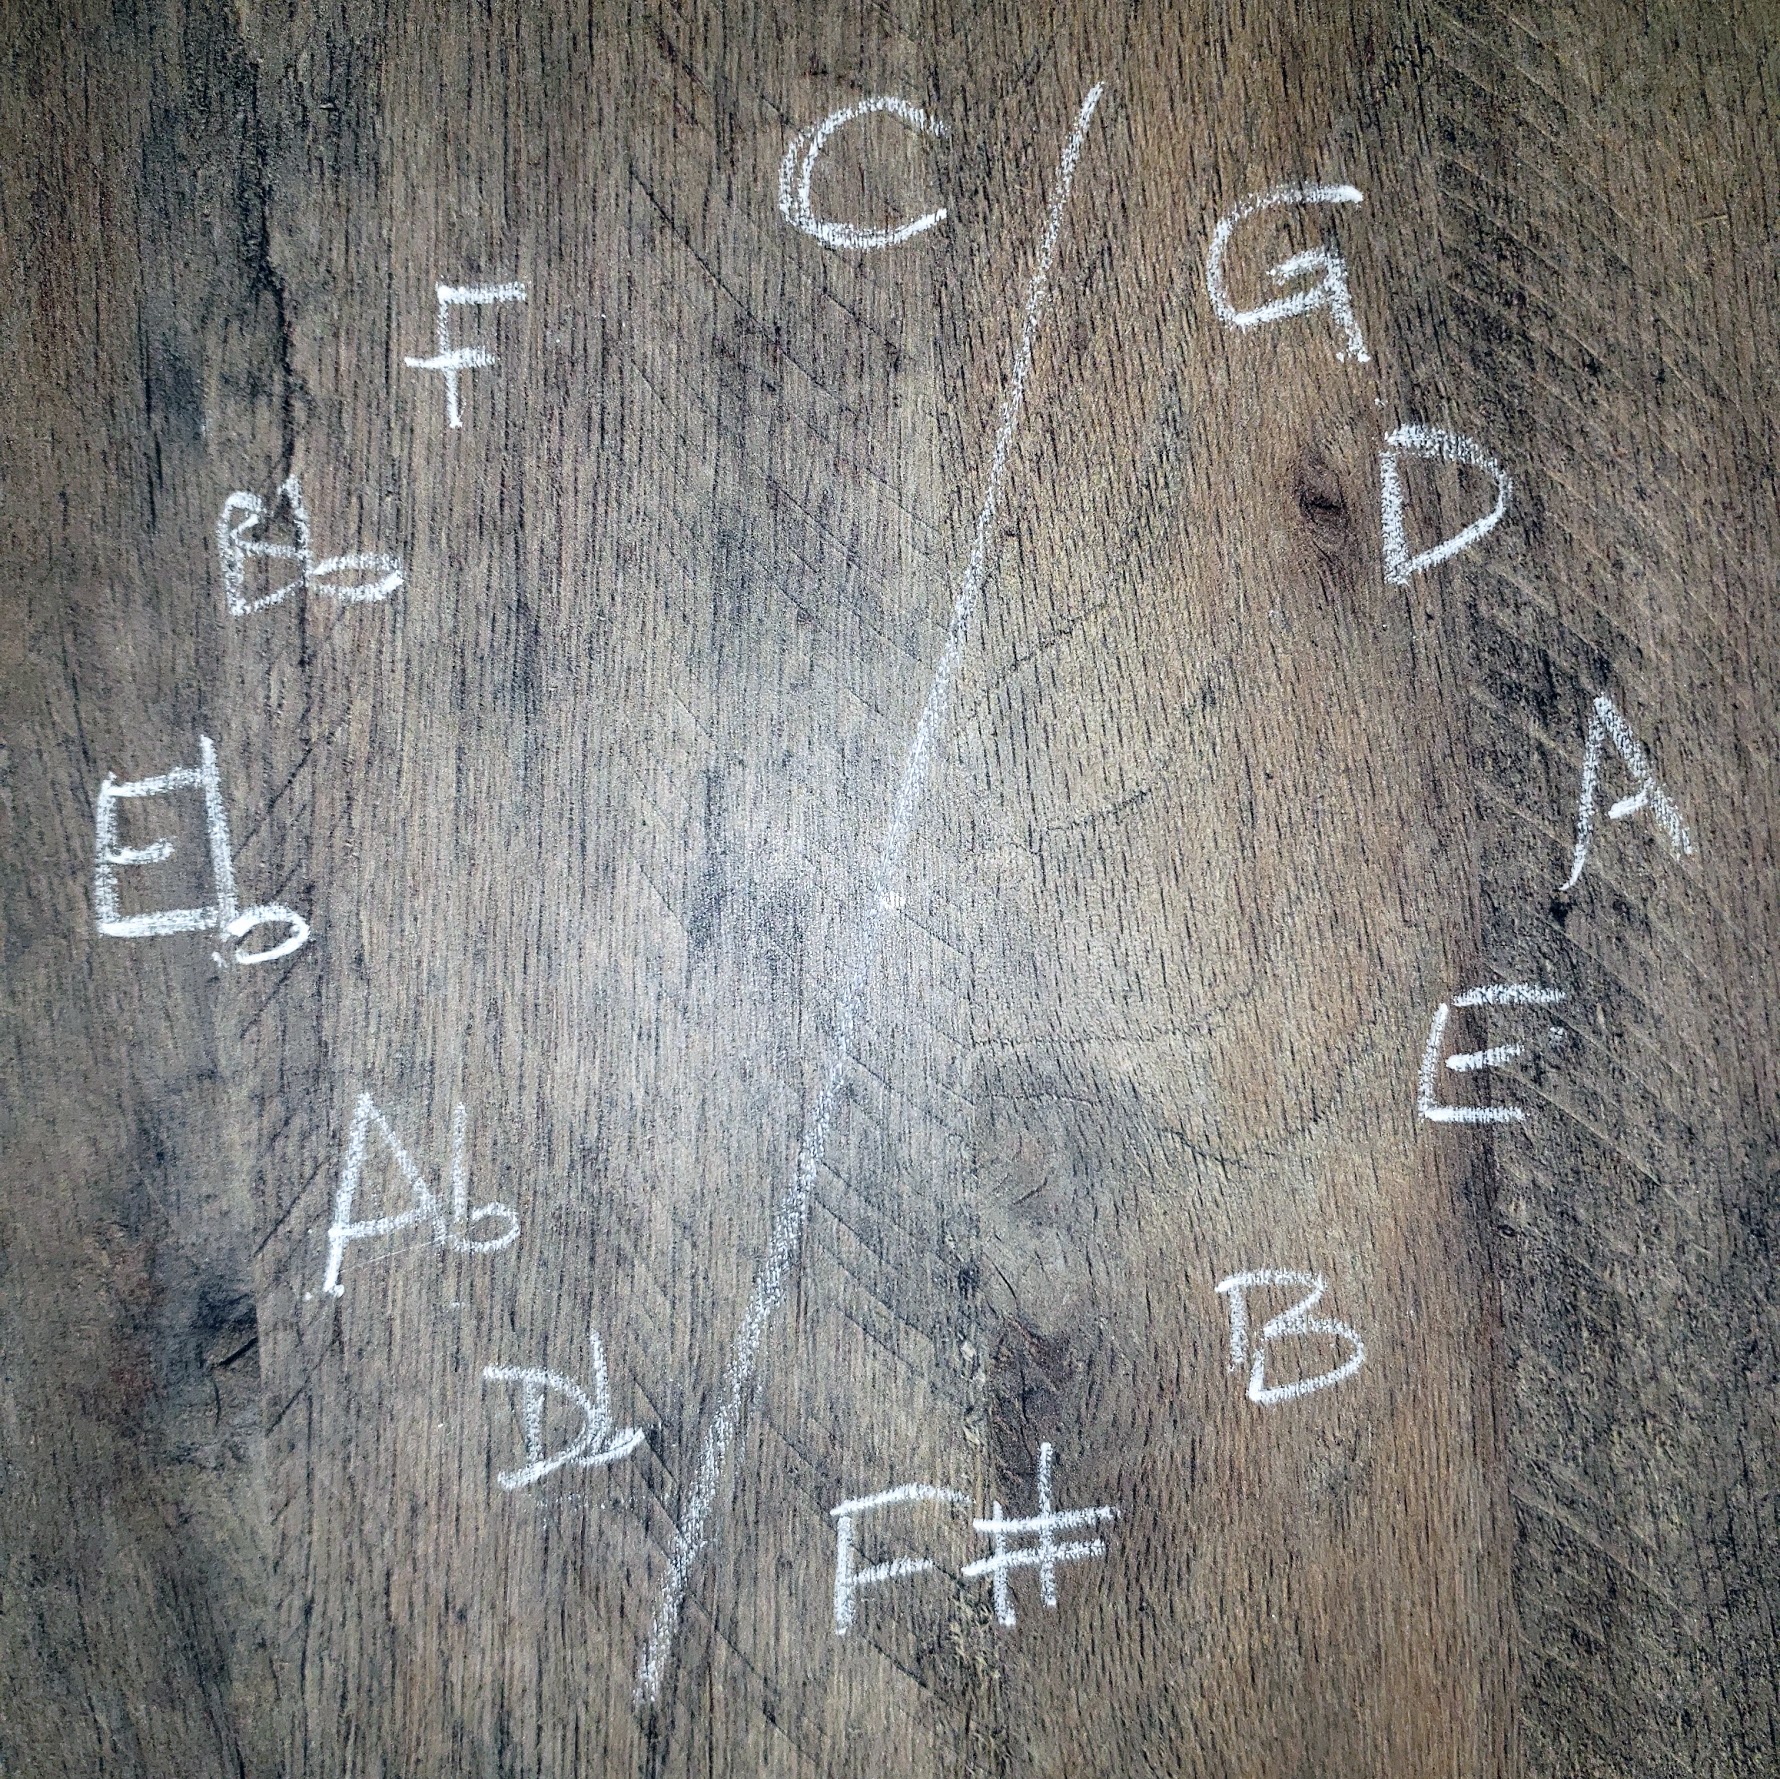 C
G
D
A
E
B
F#
Db
Ab
Eb
Bb
F